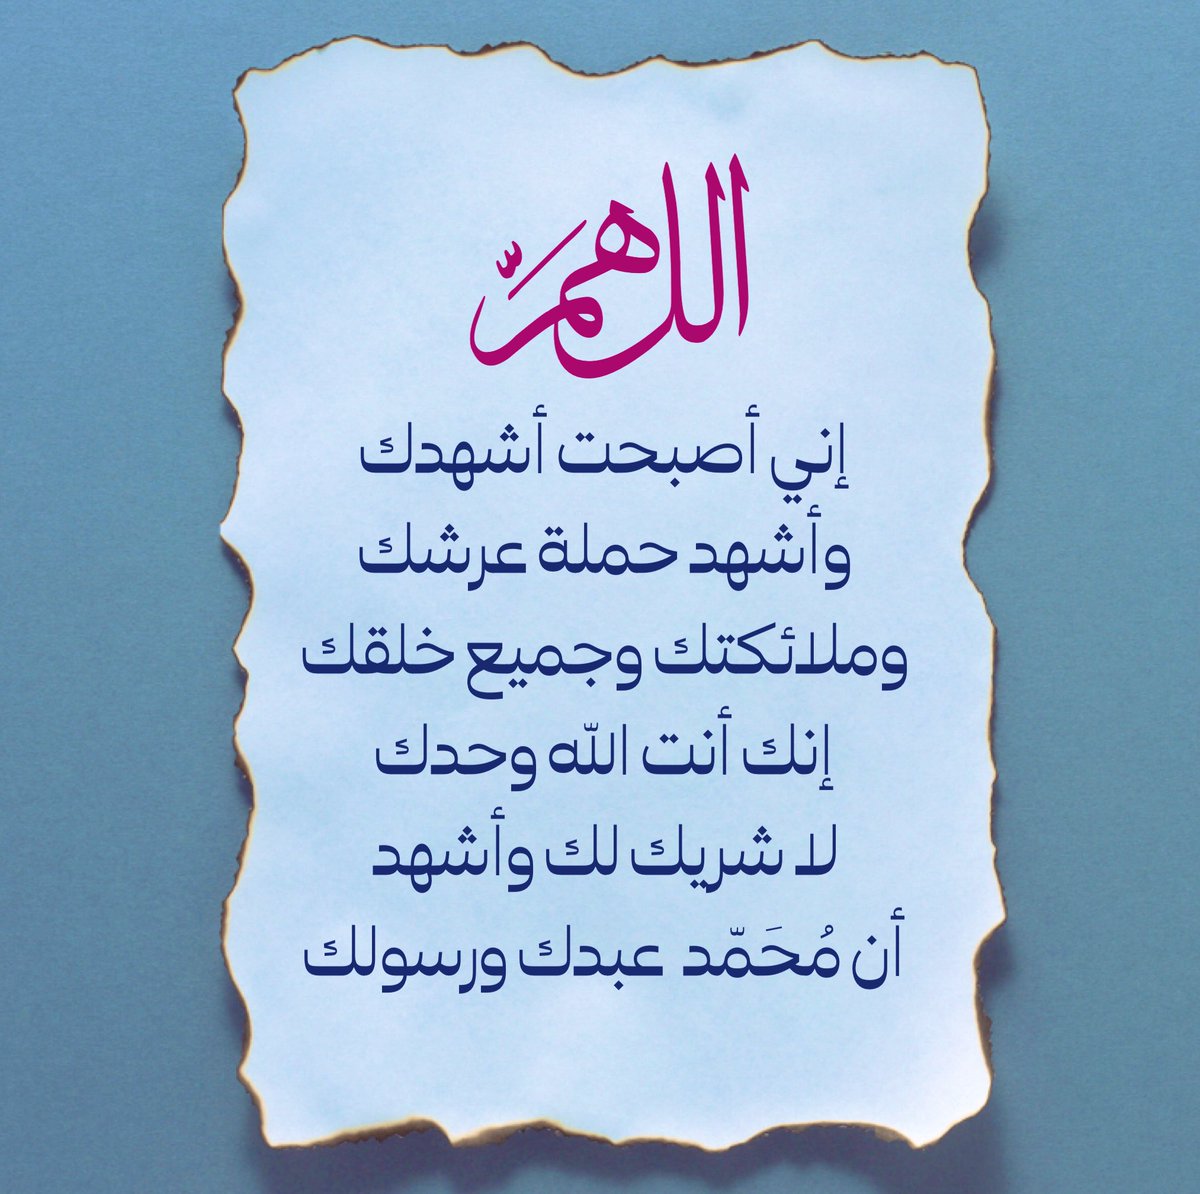 اللهمَّ
إني أصبحت أشهدك
وأشهد حملة عرشك
وملائكتك وجميع خلقك
إنك أنت الله وحدك
لا شريك لك وأشهد
أن مُحَمّد عبدك ورسولك